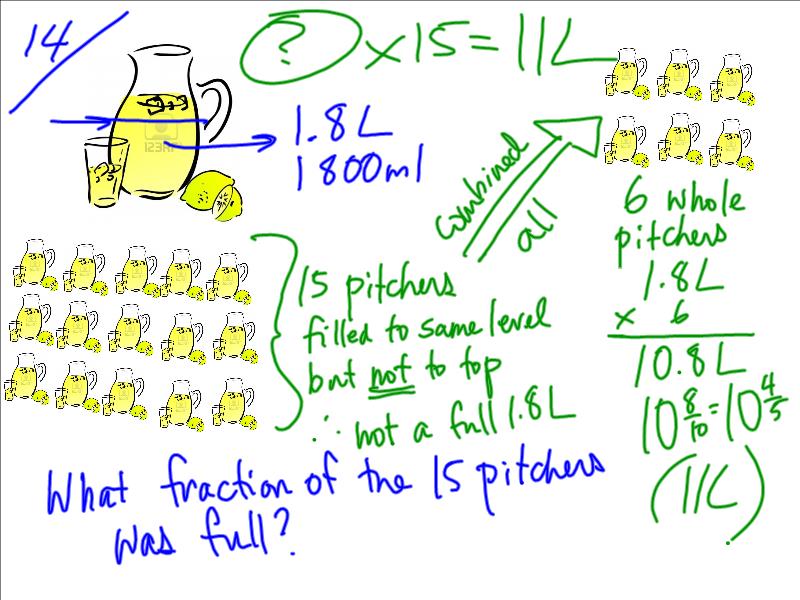 14/
? x 15 = 11L
1.8L
1800ml
combined
all
6 whole
pitchers
1.8L
x 6
10.8L
10 8/10 = 10 4/5
(11L)
15 pitchers
filled to same level
but not to top
∴ not a full 1.8L
What fraction of the 15 pitchers
was full?